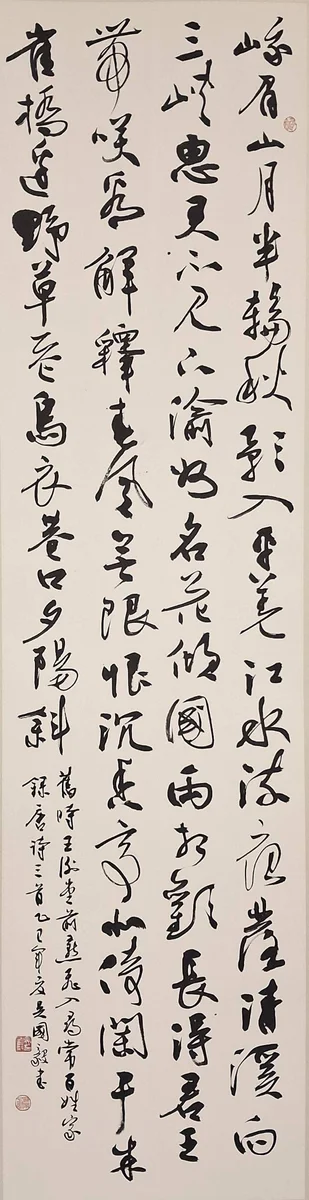 峨眉山月半輪秋影入平羌江水流夜發清溪向
三峽思君不見下渝州名花傾國兩相歡長得君王
帶笑看解釋春風無限恨沉香亭北倚闌干朱
雀橋邊野草花烏衣巷口夕陽斜
舊時王謝堂前燕飛入尋常百姓家
錄唐詩三首乙巳年夏吳國毅書